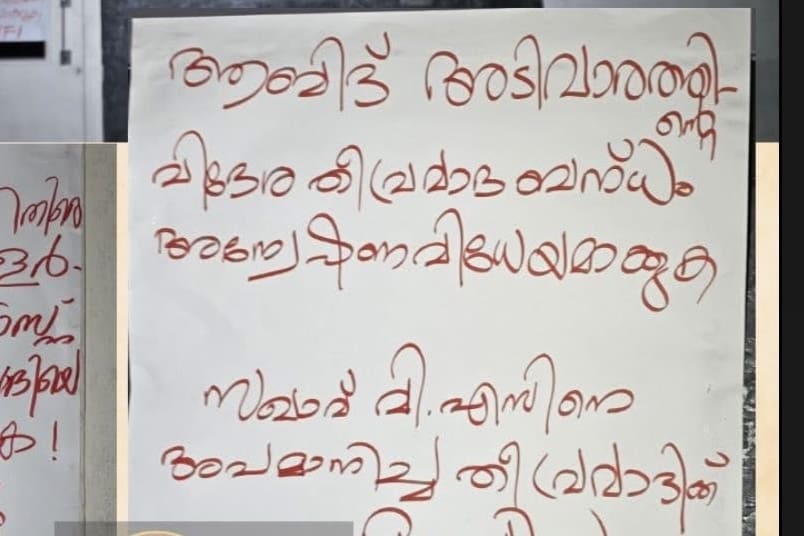 ആബിദ് അടിവാരത്തി-
ന്റെ
വിദേശ തീവ്രവാദ ബന്ധം
അന്വേഷണവിധേയമാക്കുക
സഖാവ് വി.എസിനെ
അപമാനിച്ച തീവ്രവാദിക്ക്